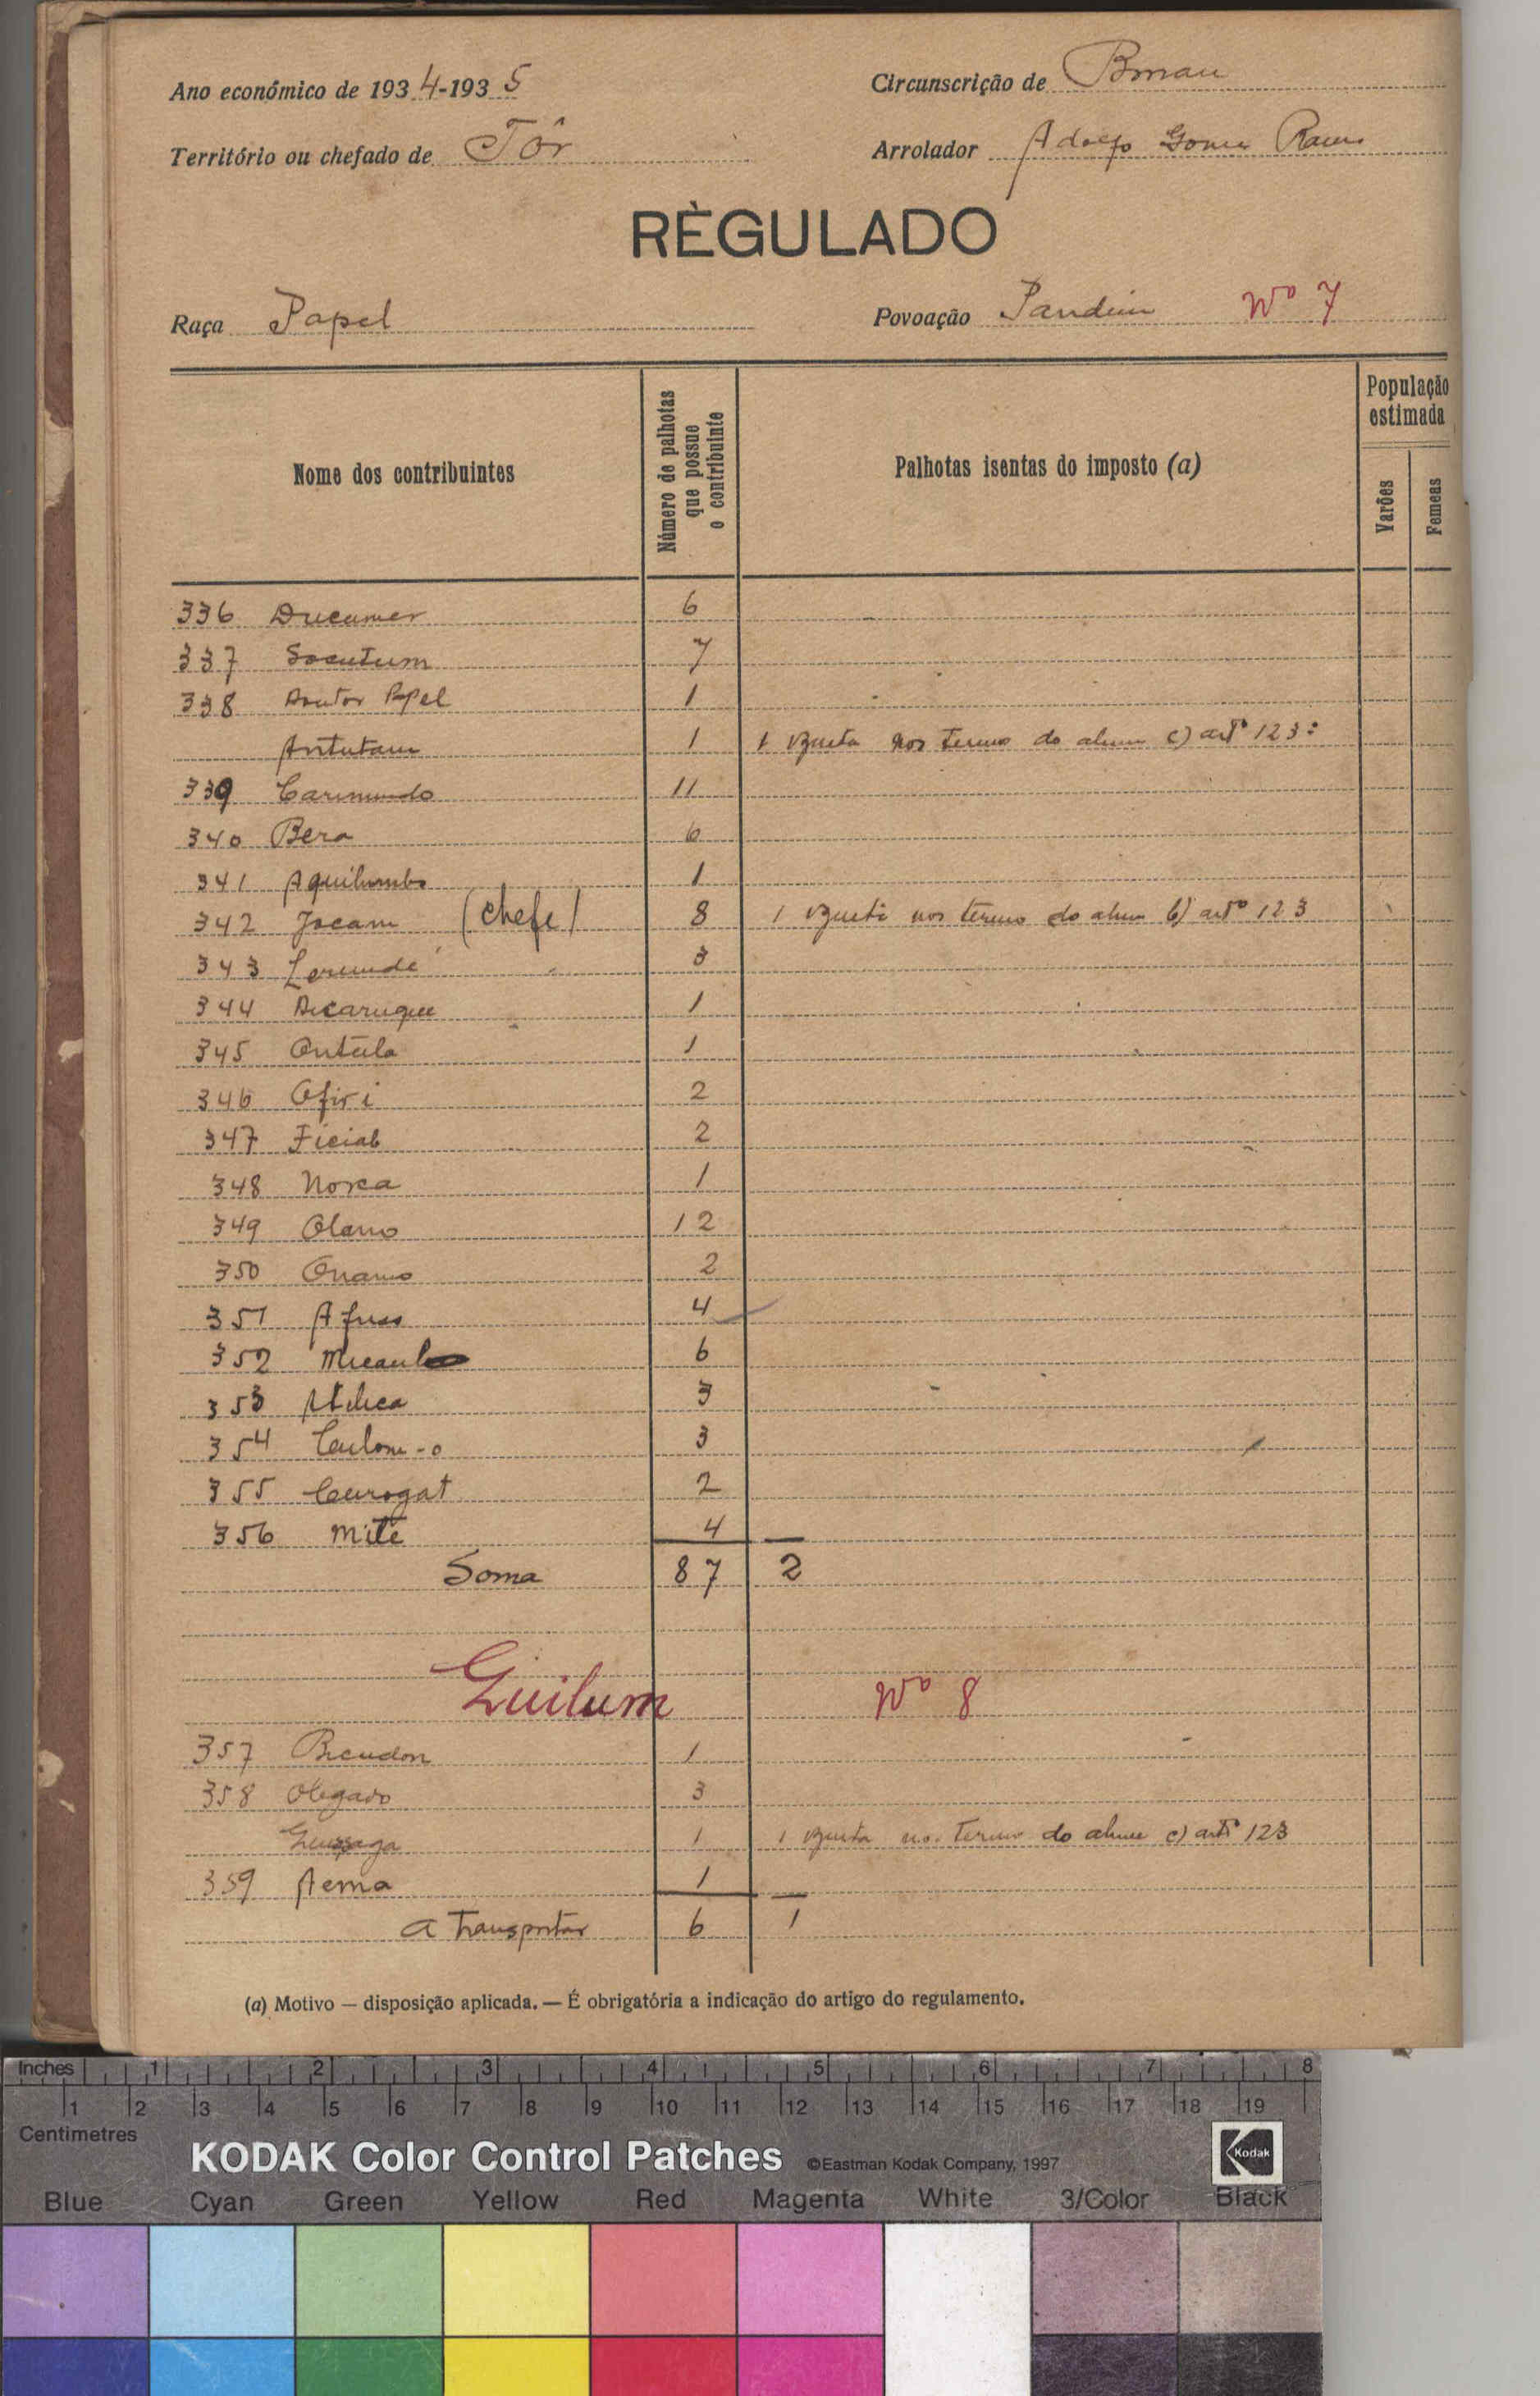 Ano económico de 1934-1935
Circunscrição de Bissau
Território ou chefado de Tôr
Arrolador Adolfo Gomes Ramos
RÈGULADO
Raça Papel
Povoação Pandim Nº 7
Nome dos contribuintes
Número de palhotas que possue o contribuinte
Palhotas isentas do imposto (a)
População estimada
Varões
Femeas
336 Ducumer 6
337 Socutum 7
338 Doutor Papel 1
Antutam 1 1 isenta nos termos do alinea c) artº 123º
339 Carimundo 11
340 Bera 6
341 Aquilumbo 1
342 Jocam (chefe) 8 1 isenta nos termos do alinea b) artº 123
343 3
344 1
345 Ontula 1
346 Ofiri 2
347 Ficiab 2
348 Norca 1
349 Olano 12
350 Onamo 2
351 Afuso 4
352 6
353 3
354 3
355 Curogat 2
356 Mité 4
Soma 87 2
Guilum Nº 8
357 Bicudon 1
358 Olegado 3
1 1 isenta nos termos do alinea c) artº 123
359 Aema 1
A transportar 6 1
(a) Motivo — disposição aplicada. — É obrigatória a indicação do artigo do regulamento.
Inches 1 2 3 4 5 6 7 8
1 2 3 4 5 6 7 8 9 10 11 12 13 14 15 16 17 18 19
Centimetres
KODAK Color Control Patches ©Eastman Kodak Company, 1997 Kodak
Blue Cyan Green Yellow Red Magenta White 3/Color Black